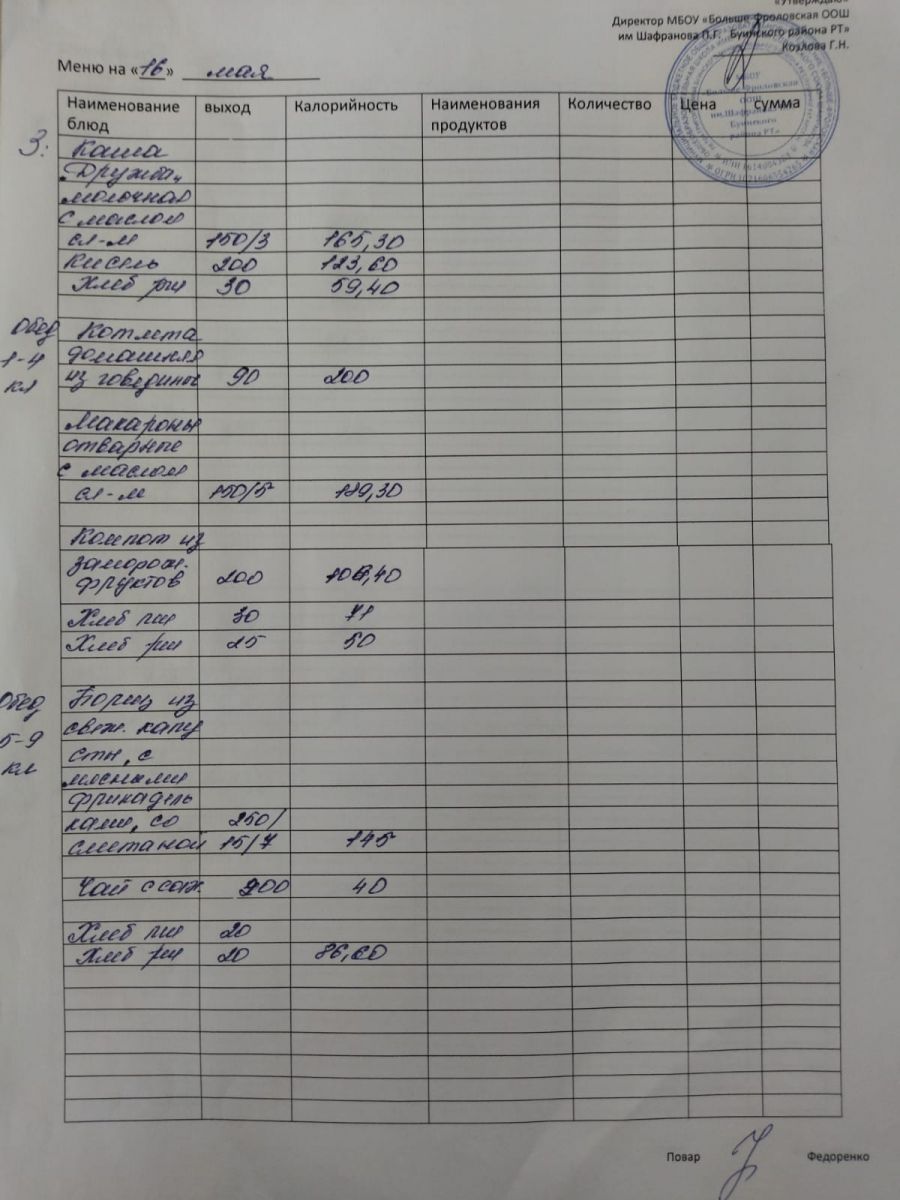 «Утверждаю»
Директор МБОУ «Больше-Фроловская ООШ
им Шафранова П.Г. Буинского района РТ»
Козлова Г.Н.
Меню на «16» мая
Наименование блюд выход Калорийность Наименования продуктов Количество Цена сумма
МБОУ
Больше-Фроловская
ООШ
им.Шафранова
Буинского
района РТ»
З: Каша
"Дружба"
молочная
с маслом
сл-м 150/3 165,30
Кисель 200 123,60
Хлеб рж 30 59,40
Обед Котлета
1-4 домашняя
кл из говядины 90 200
Макароны
отварные
с маслом
сл-м 150/5 189,30
Компот из
заморож.
фруктов 200
Хлеб пш 30 71
Хлеб рж 25 50
Обед Борщ из
5-9 свеж. капу
кл сты, с
мясными
фрикадель
ками, со 250/
сметаной 15/7 145
Чай с сах. 200 40
Хлеб пш 20
Хлеб рж 20 86,60
Повар Федоренко